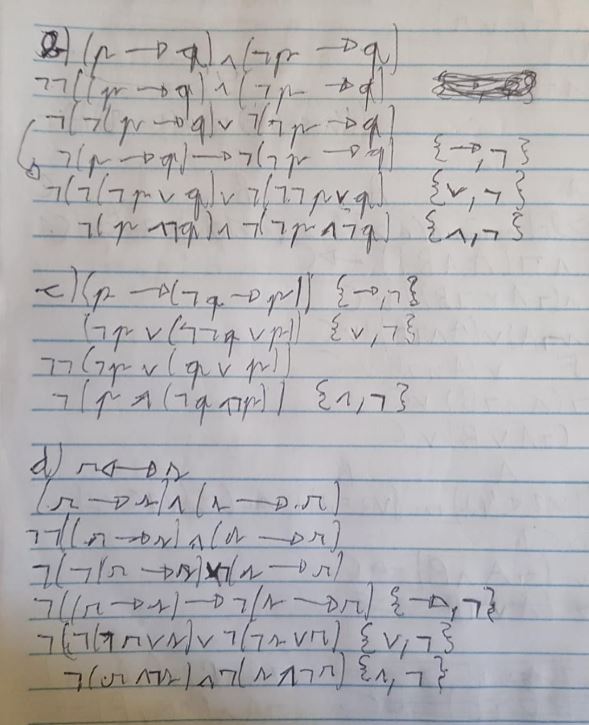 b) (p → q) ∧ (¬p → q)
¬¬((p → q) ∧ (¬p → q)
¬(¬(p → q) ∨ ¬(¬p → q)
¬(p → q) → ¬(¬p → q) {→,¬}
¬(¬(¬p ∨ q) ∨ ¬(¬¬p ∨ q) {∨,¬}
¬(p ∧ ¬q) ∧ ¬(¬p ∧ ¬q) {∧,¬}
c) (p → (¬q → p)) {→,¬}
(¬p ∨ (¬¬q ∨ p)) {∨,¬}
¬¬(¬p ∨ (q ∨ p))
¬(p ∧ (¬q ∧ ¬p)) {∧,¬}
d) r ↔ s
(r → s) ∧ (s → r)
¬¬((r → s) ∧ (s → r)
¬(¬(r → s) ∨ ¬(s → r)
¬((r → s) → ¬(s → r) {→,¬}
¬(¬(¬r ∨ s) ∨ ¬(¬s ∨ r) {∨,¬}
¬(r ∧ ¬s) ∧ ¬(s ∧ ¬r) {∧,¬}